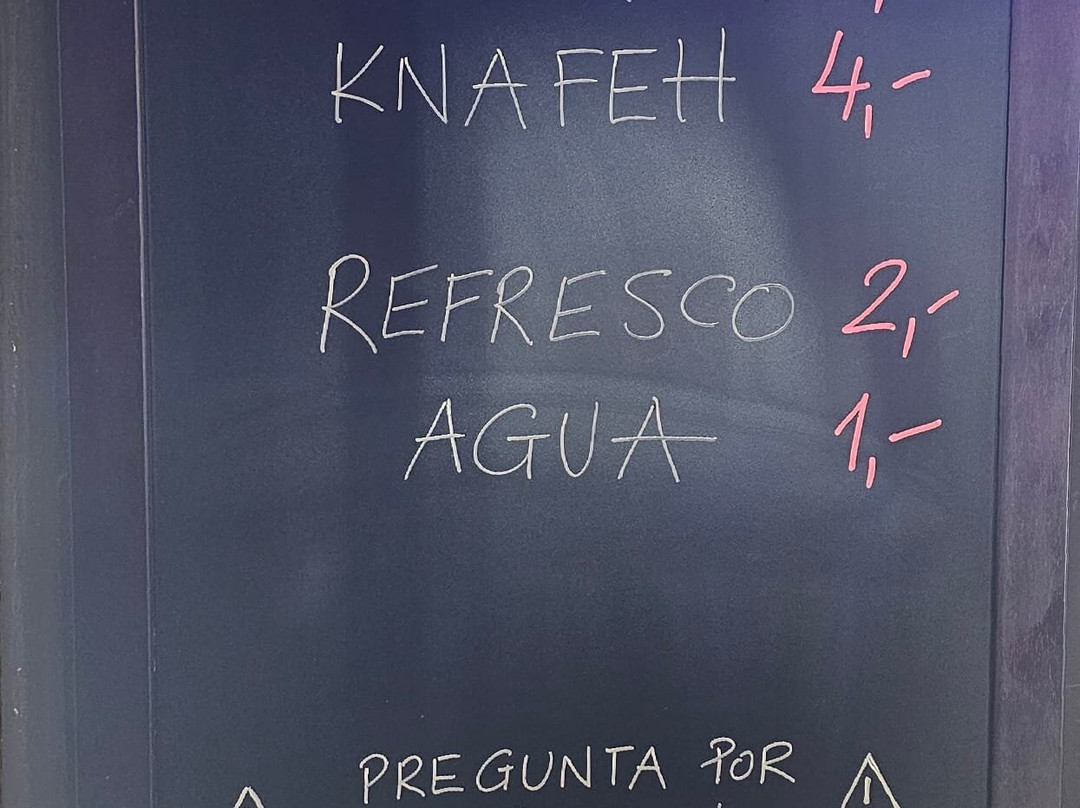 KNAFEH 4,-
REFRESCO 2,-
AGUA 1,-
PREGUNTA POR